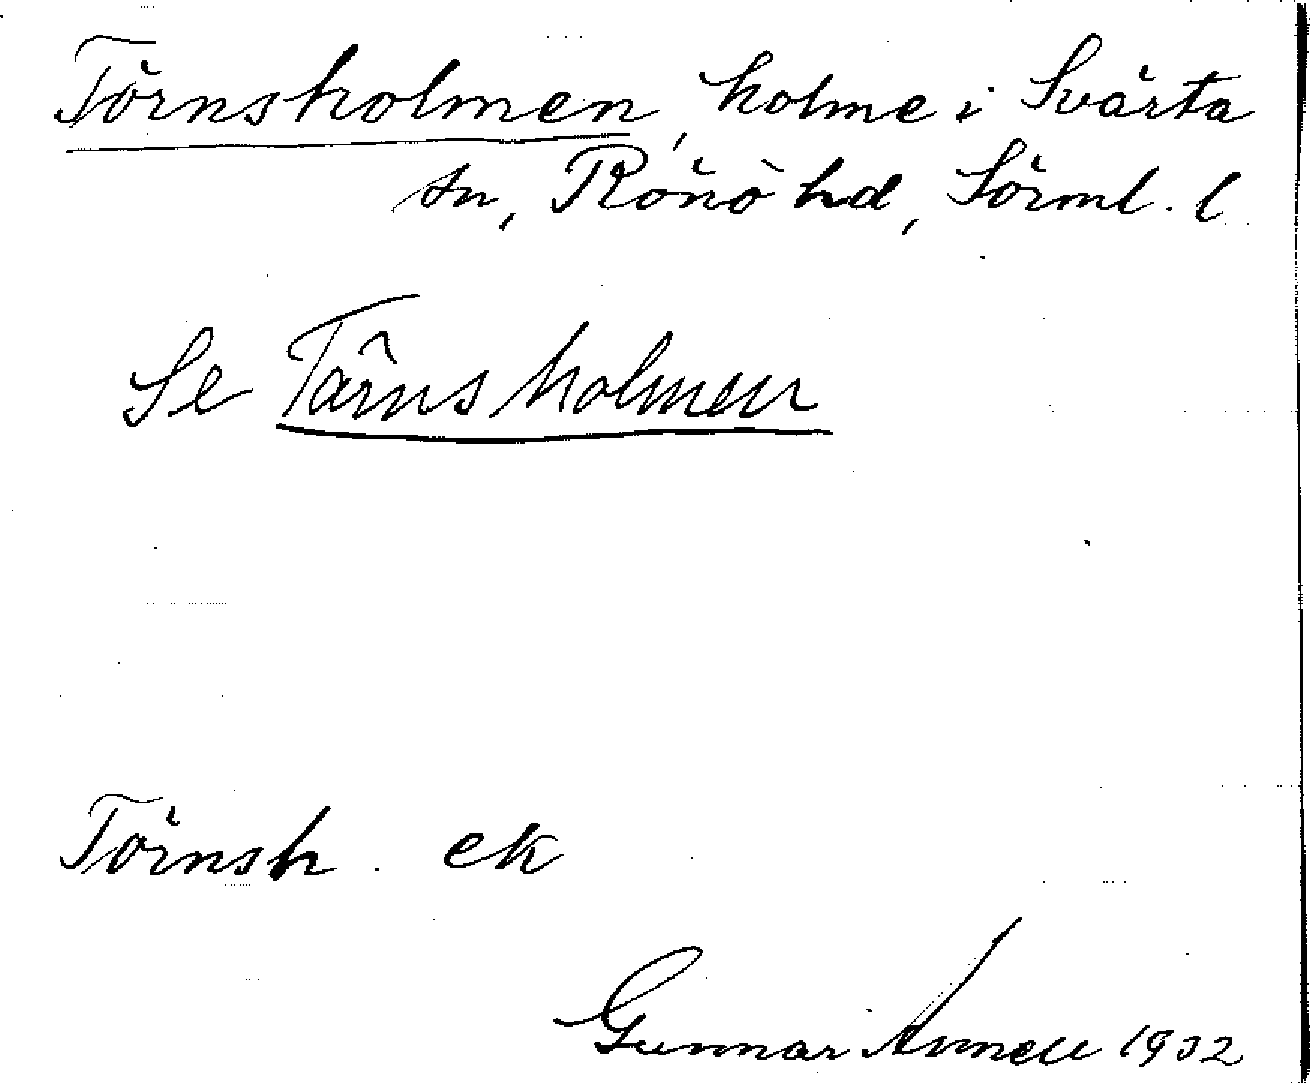 Törnsholmen, holme i Svärta
sn, Rönö hd, Sörml. l
Se Tärnsholmen
Törnsh. ek
Gunnar Annell 1932